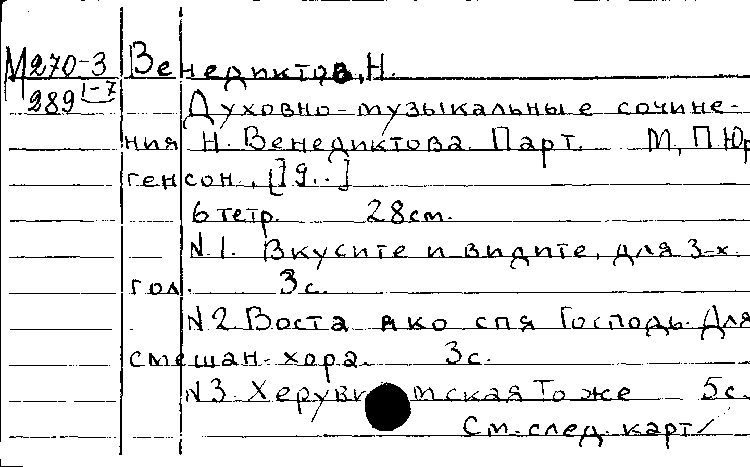 М270-3 Венедиктов, Н.
289 1-7
Духовно-музыкальные сочине-
ния Н. Венедиктова. Парт. М, П Юр
генсон, [19..]
6 тетр. 28 см.
N.1. Вкусите и видите, для 3-х
гол. 3 с.
N2. Воста яко спя Господь. Для
смешан. хора. 3 с.
N3. То же 5 с.
См. след. карт/